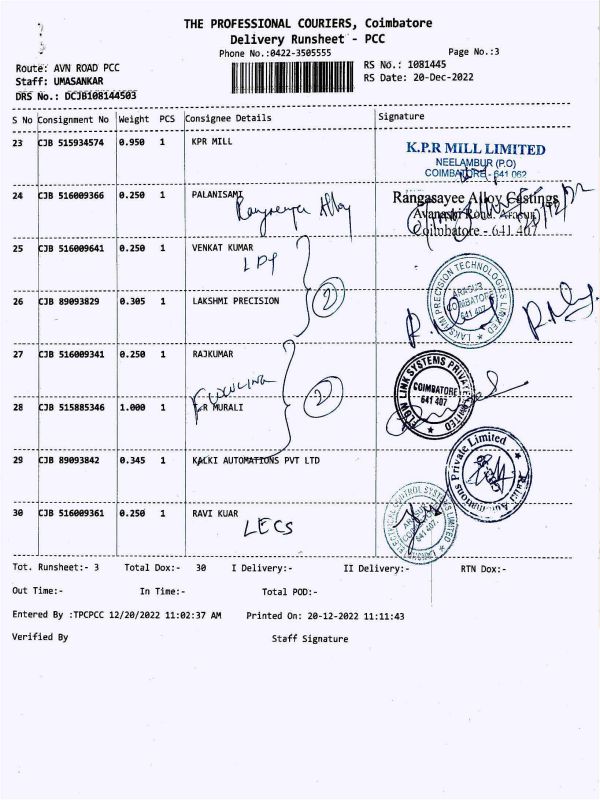 THE PROFESSIONAL COURIERS, Coimbatore
Delivery Runsheet - PCC
Phone No.:0422-3505555
Page No.:3
Route: AVN ROAD PCC
RS No.: 1081445
Staff: UMASANKAR
RS Date: 20-Dec-2022
DRS No.: DCJB108144503
S No Consignment No Weight PCS Consignee Details Signature
23 CJB 515934574 0.950 1 KPR MILL
K.P.R MILL LIMITED
NEELAMBUR (P.O)
COIMBATORE - 641 062
24 CJB 516009366 0.250 1 PALANISAMI
Rangasayee Alloy Castings
Avanashi Road, Arasur,
Coimbatore - 641 407.
25 CJB 516009641 0.250 1 VENKAT KUMAR
LPT
26 CJB 89093829 0.305 1 LAKSHMI PRECISION
2
LAKSHMI PRECISION TECHNOLOGIES LIMITED
ARASUR
COIMBATORE
641 407
27 CJB 516009341 0.250 1 RAJKUMAR
28 CJB 515885346 1.000 1 R MURALI
2
FLOW LINK SYSTEMS PRIVATE LIMITED
COIMBATORE
641 407
29 CJB 89093842 0.345 1 KALKI AUTOMATIONS PVT LTD
Private Limited
30 CJB 516009361 0.250 1 RAVI KUAR
LECS
ELECTRICAL CONTROL SYSTEMS LIMITED
641 407.
Tot. Runsheet:- 3 Total Dox:- 30 I Delivery:- II Delivery:- RTN Dox:-
Out Time:- In Time:- Total POD:-
Entered By :TPCPCC 12/20/2022 11:02:37 AM Printed On: 20-12-2022 11:11:43
Verified By Staff Signature